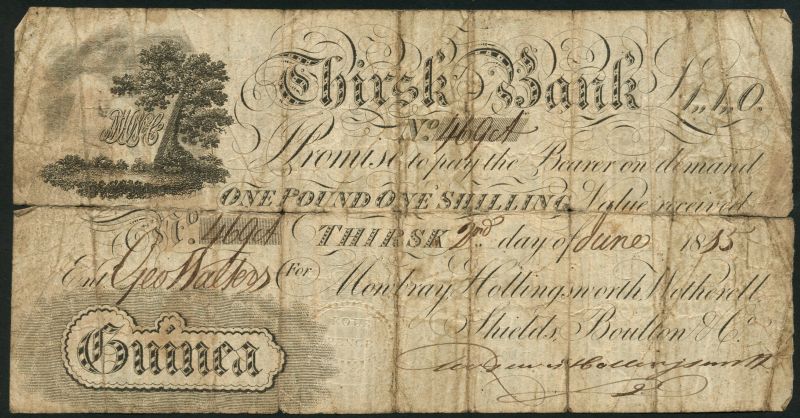 Thirsk Bank £1,,1,,0.
No. 469A
I Promise to pay the Bearer on demand
ONE POUND ONE SHILLING Value received
No. 469A THIRSK 2nd day of June 1815
Entd Geo Walters For Monbray, Hollingsworth, Wetherell
Shields, Boulton & Co.
Guinea